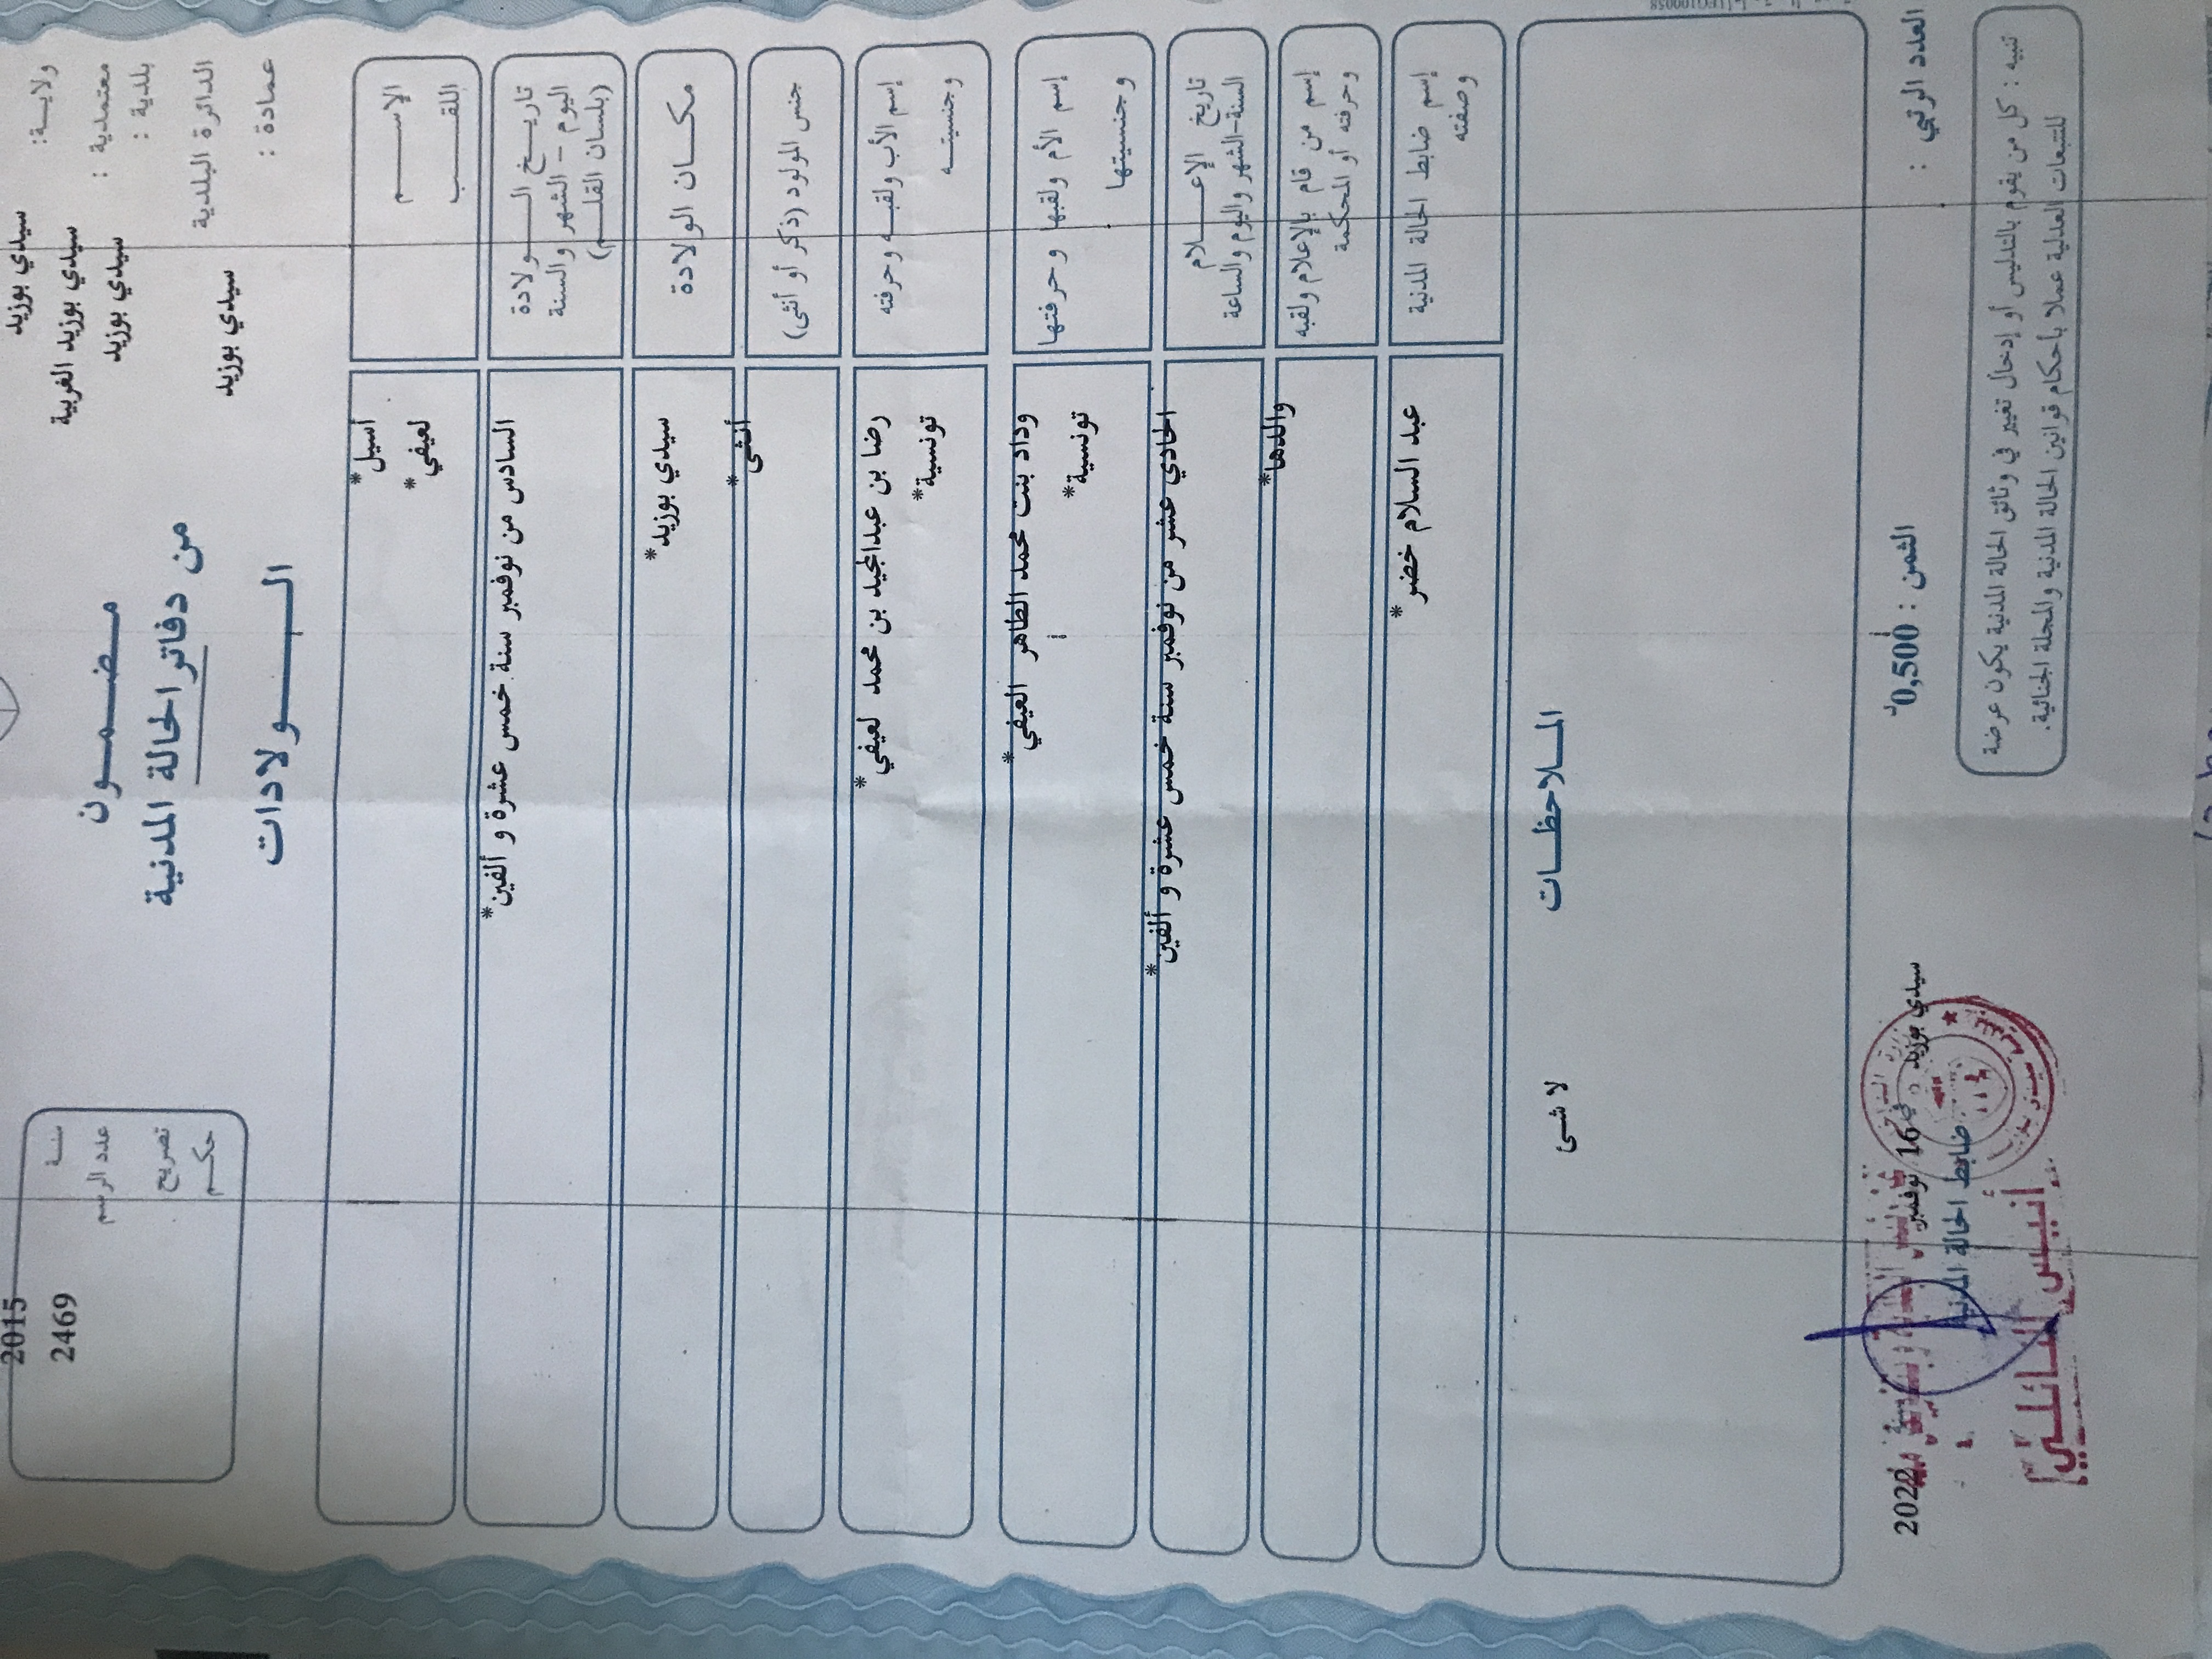 ولايـــة: سيدي بوزيد
معتمدية : سيدي بوزيد الغربية
بلدية : سيدي بوزيد
الدائرة البلدية
سيدي بوزيد
عمادة :
مضـمـــون
من دفاتر الحالة المدنية
الـــــولادات
سنـــة 2015
عدد الرسم 2469
تصريح
حكـــم
الاســـــم أسيل*
اللقـــــب لعيفي*
تاريـــخ الـــــولادة
اليوم - الشهر والسنة
(بلسان القلـــم)
السادس من نوفمبر سنة خمس عشرة و ألفين*
مكـــان الولادة سيدي بوزيد*
جنس المولود (ذكر أو أنثى) أنثى*
إسم الأب ولقبـــه وحرفته رضا بن عبدالمجيد بن محمد لعيفي*
وجنسيتـــه تونسية*
إسم الأم ولقبها وحرفتها وداد بنت محمد الطاهر العيفي*
وجنسيتها تونسية*
تاريخ الإعـــــلام
السنة-الشهر واليوم والساعة
الحادي عشر من نوفمبر سنة خمس عشرة و ألفين*
إسم من قام بالإعلام ولقبه
وحرفته أو المحكمة
والدها*
إسم ضابط الحالة المدنية
وصفته
عبد السلام خضر*
الملاحظـــات
لا شى
العدد الرتبي :
الثمن : 0,500د
سيدي بوزيد في 16 نوفمبر 2022
ضابط الحالة المدنية
تنبيه : كل من يقوم بالتدليس أو إدخال تغيير في وثائق الحالة المدنية يكون عرضة
للتتبعات العدلية عملا بأحكام قوانين الحالة المدنية والمجلة الجنائية.